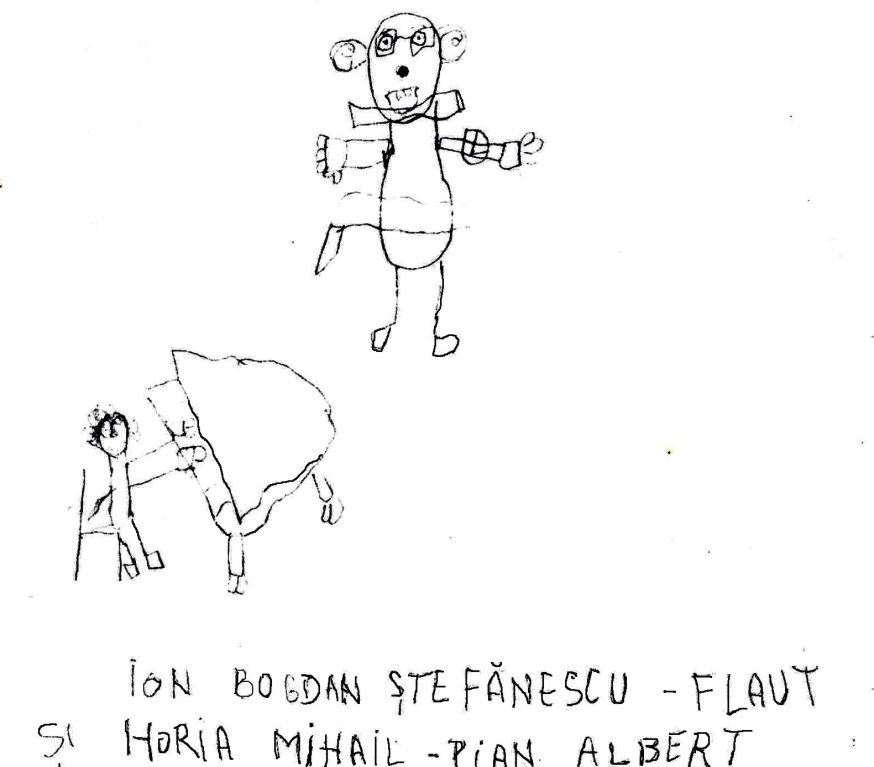 ION BOGDAN ȘTEFĂNESCU - FLAUT
ȘI HORIA MIHAIL - PIAN ALBERT